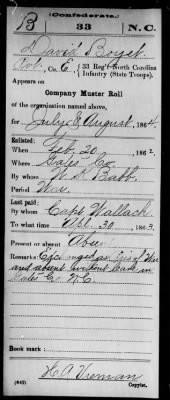 (Confederate.)
B 33 N.C.
David
Co. E, 33 Reg't North Carolina
Infantry (State Troops).
Company Muster Roll
of the organization named above,
for July & August, 1864.
Enlisted:
When Feb. 20, 1862
Where Gates Co.
By whom W. S. Babb.
Period War.
Last paid:
By whom Capt Wallach
To what time Apl. 30, 1863.
Present or absent
Remarks: Exchanged as Pris of War
and absent without leave in
Gates Co. N.C.
Book mark:
(642) Copyist.